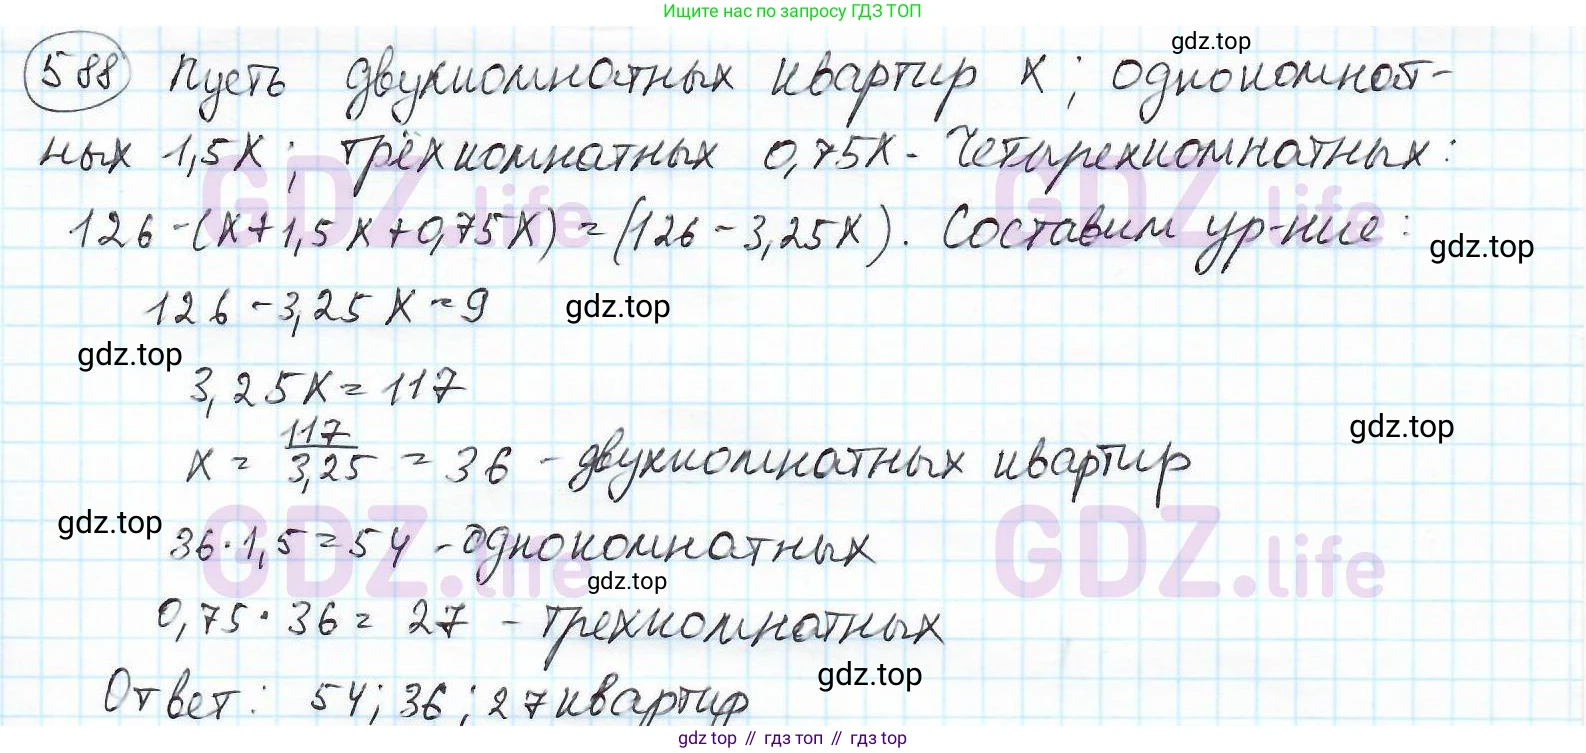 Ищите нас по запросу ГДЗ ТОП
588 Пусть двухкомнатных квартир x; однокомнат-
gdz.top
ных 1,5x; трёхкомнатных 0,75x. Четырехкомнатных:
GDZ.life GDZ.life
126-(x+1,5x+0,75x)=(126-3,25x). Составим ур-ние:
gdz.top
126-3,25x=9
gdz.top
gdz.top
3,25x=117
x = 117/3,25 = 36 - двухкомнатных квартир
gdz.top
gdz.top
36·1,5=54 - однокомнатных
GDZ.life GDZ.life
gdz.top
0,75·36= 27 - трехкомнатных
gdz.top
Ответ: 54; 36; 27 квартир
gdz top // гдз топ // gdz top